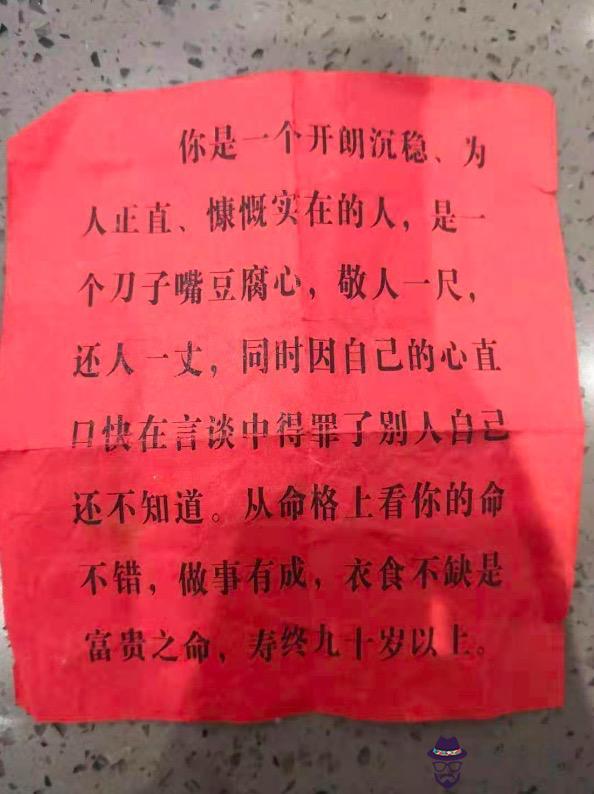 你是一个开朗沉稳、为
人正直、慷慨实在的人，是一
个刀子嘴豆腐心，敬人一尺，
还人一丈，同时因自己的心直
口快在言谈中得罪了别人自己
还不知道。从命格上看你的命
不错，做事有成，衣食不缺是
富贵之命，寿终九十岁以上。